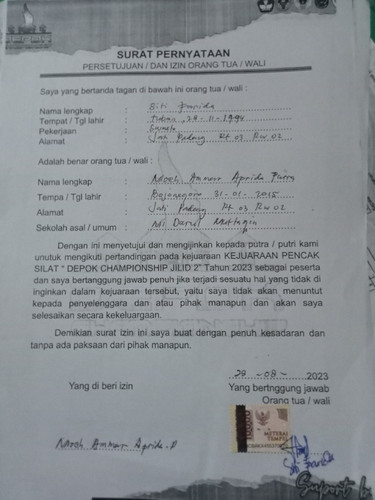 SURAT PERNYATAAN
PERSETUJUAN / DAN IZIN ORANG TUA / WALI
Saya yang bertanda tagan di bawah ini orang tua / wali :
Nama lengkap : Siti Parida
Tempat / Tgl lahir : Tuban, 28-11-1994
Pekerjaan : Swasta
Alamat : Jati Padang Rt 03 Rw 02
Adalah benar orang tua / wali :
Nama lengkap : Moch Ammar Aprida Putra
Tempa / Tgl lahir : Bojonegoro 31-01-2015
Alamat : Jati Padang Rt 03 Rw 02
Sekolah asal / umum : Mi Darul Muttaqin
Dengan ini menyetujui dan mengijinkan kepada putra / putri kami
unutuk mengikuti pertandingan pada kejuaraan KEJUARAAN PENCAK
SILAT " DEPOK CHAMPIONSHIP JILID 2" Tahun 2023 sebagai peserta
dan saya bertanggung jawab penuh jika terjadi sesuatu hal yang tidak di
inginkan dalam kejuaraan tersebut, yaitu saya tidak akan menuntut
kepada penyelenggara dan atau pihak manapun dan akan saya
selesaikan secara kekeluargaan.
Demikian surat izin ini saya buat dengan penuh kesadaran dan
tanpa ada paksaan dari pihak manapun.
29 - 08 - 2023
Yang di beri izin
Yang bertnggung jawab
Orang tua / wali
10000
METERAI
TEMPEL
Moch Ammar Aprida.P